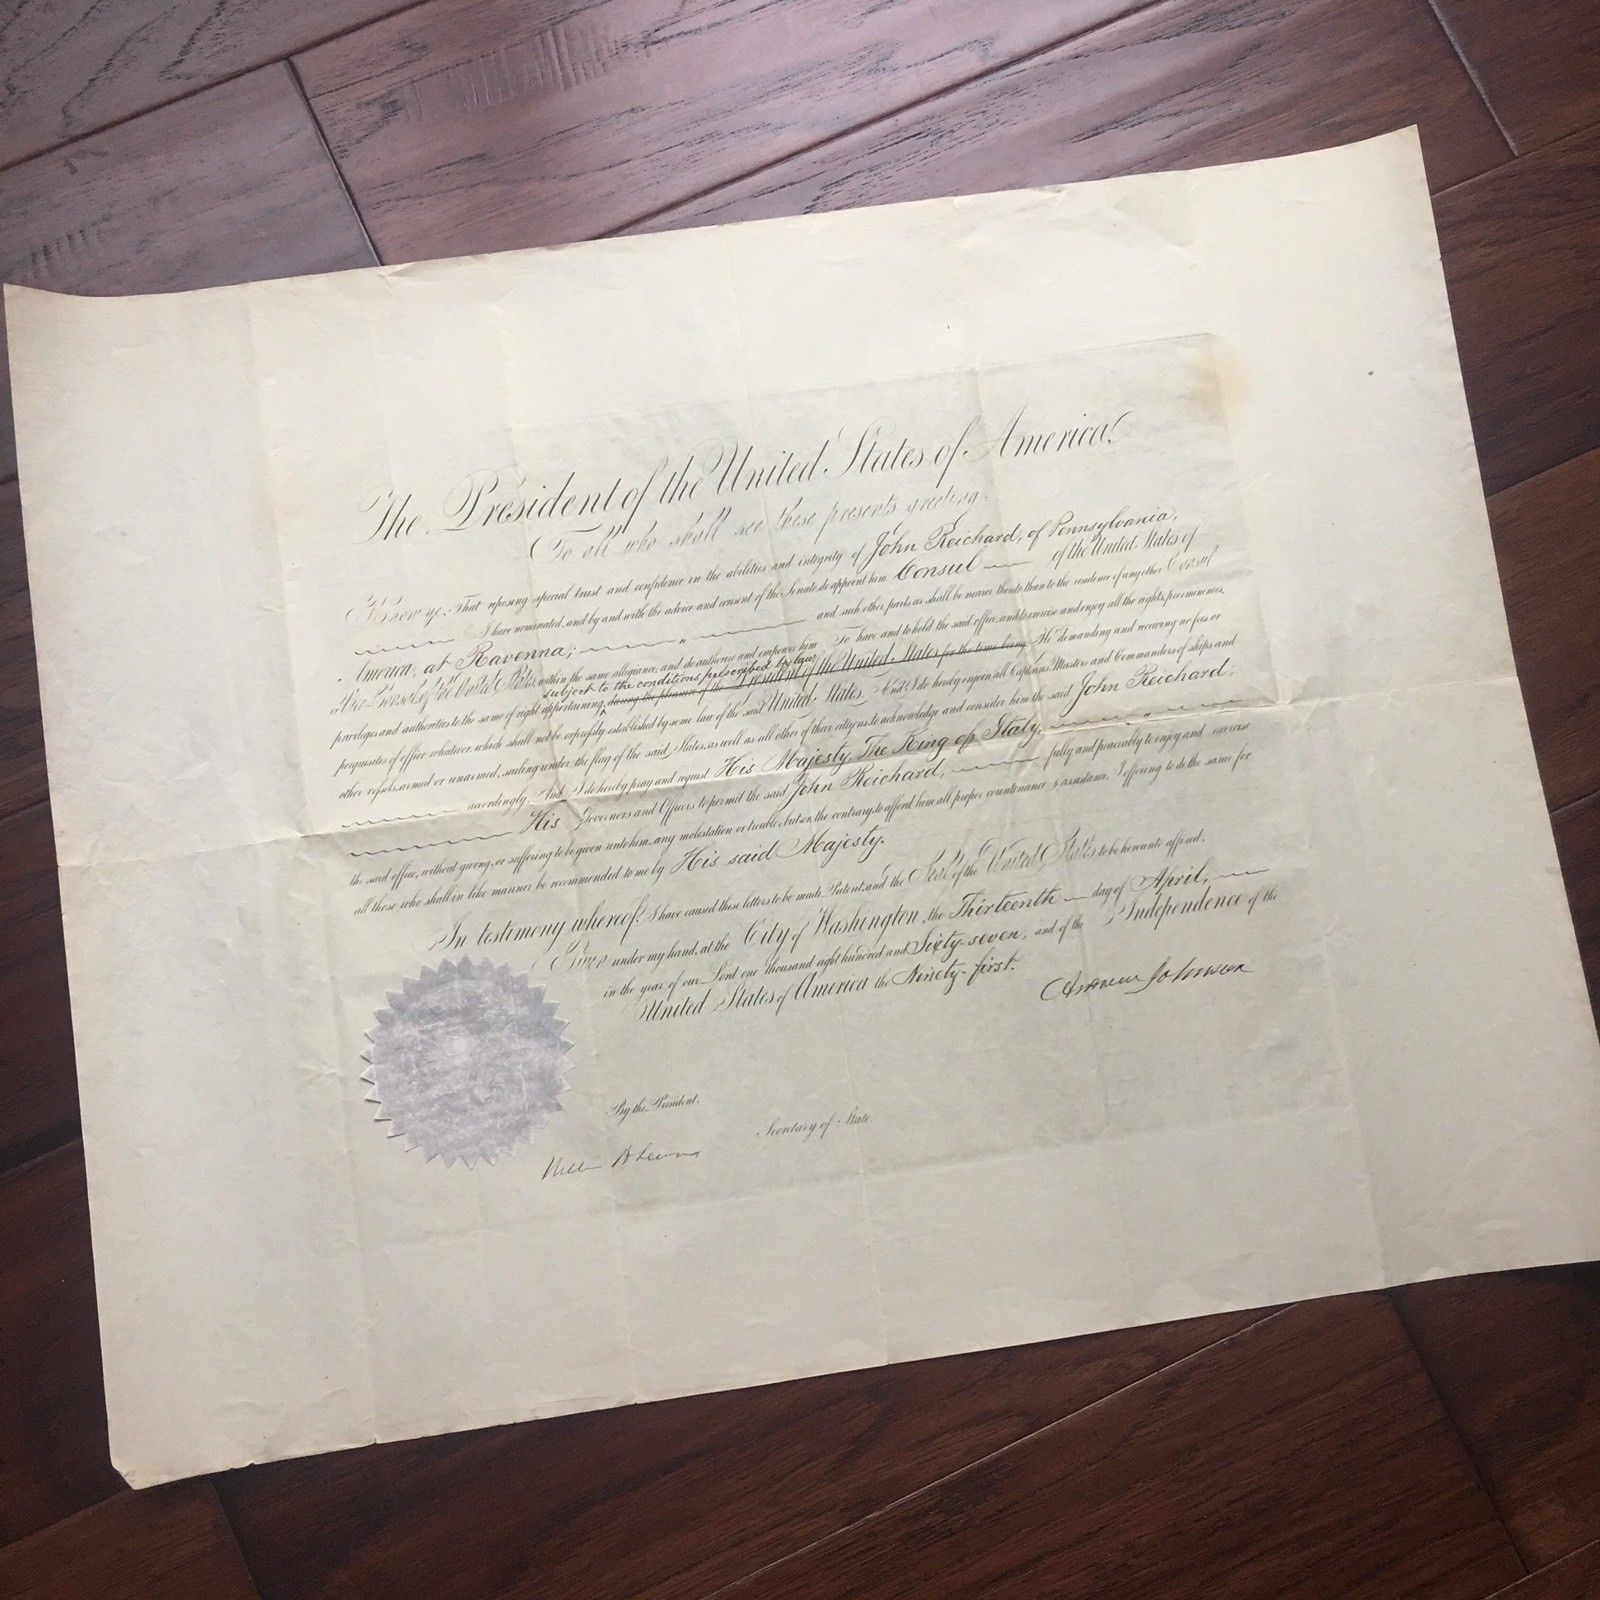 The President of the United States of America,
To all who shall see these presents greeting.
Know ye, That reposing special trust and confidence in the abilities and integrity of John Reichard, of Pennsylvania,
I have nominated, and by and with the advice and consent of the Senate do appoint him Consul of the United States of
America, at Ravenna; and such other parts as shall be nearer thereto than to the residence of any other Consul
or Vice-Consul of the United States, within the same allegiance, and do authorise and empower him To have and to hold the said office, and to exercise and enjoy all the rights, preeminences,
subject to the conditions prescribed by law
privileges and authorities to the same of right appertaining, during the pleasure of the President of the United States for the time being He demanding and receiving no fees or
perquisites of office whatever, which shall not be expressly established by some law of the said United States. And I do hereby enjoin all Captains, Masters and Commanders of ships and
other vessels, armed or unarmed, sailing under the flag of the said States, as well as all other of their citizens, to acknowledge and consider him the said John Reichard,
accordingly. And I do hereby pray and request His Majesty, The King of Italy,
His Governors and Officers to permit the said John Reichard, fully and peaceably to enjoy and exercise
the said office, without giving, or suffering to be given unto him, any molestation or trouble, but on the contrary, to afford him all proper countenance & assistance, I offering to do the same for
all those who shall in like manner be recommended to me by His said Majesty.
In testimony whereof, I have caused these letters to be made Patent, and the Seal of the United States to be hereunto affixed.
Given under my hand, at the City of Washington the Thirteenth day of April,
in the year of our Lord one thousand eight hundred and Sixty-seven, and of the Independence of the
United States of America the Ninety-first.
Andrew Johnson
By the President.
Secretary of State